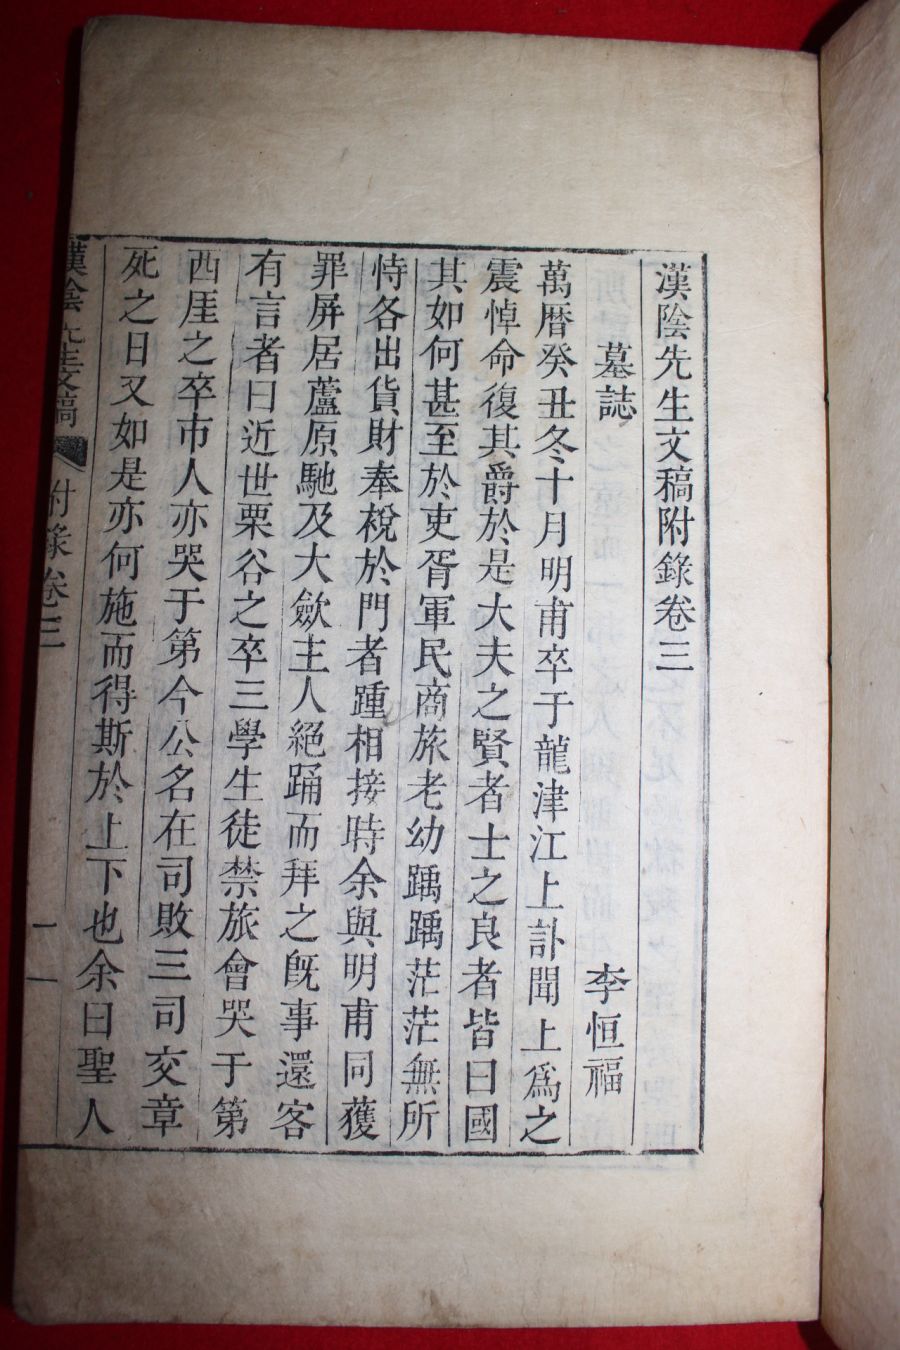 漢陰先生文稿附錄卷三
墓誌 李恒福
萬曆癸丑冬十月明甫卒于龍津江上訃聞上爲之
震悼命復其爵於是大夫之賢者士之良者皆曰國
其如何甚至於吏胥軍民商旅老幼踽踽茫茫無所
恃各出貨財奉梲於門者踵相接時余與明甫同獲
罪屏居蘆原馳及大歛主人絕踊而拜之旣事還客
有言者曰近世栗谷之卒三學生徒禁旅會哭于第
西厓之卒市人亦哭于第今公名在司敗三司交章
死之日又如是亦何施而得斯於上下也余曰聖人
漢陰先生文稿 附錄卷三 一